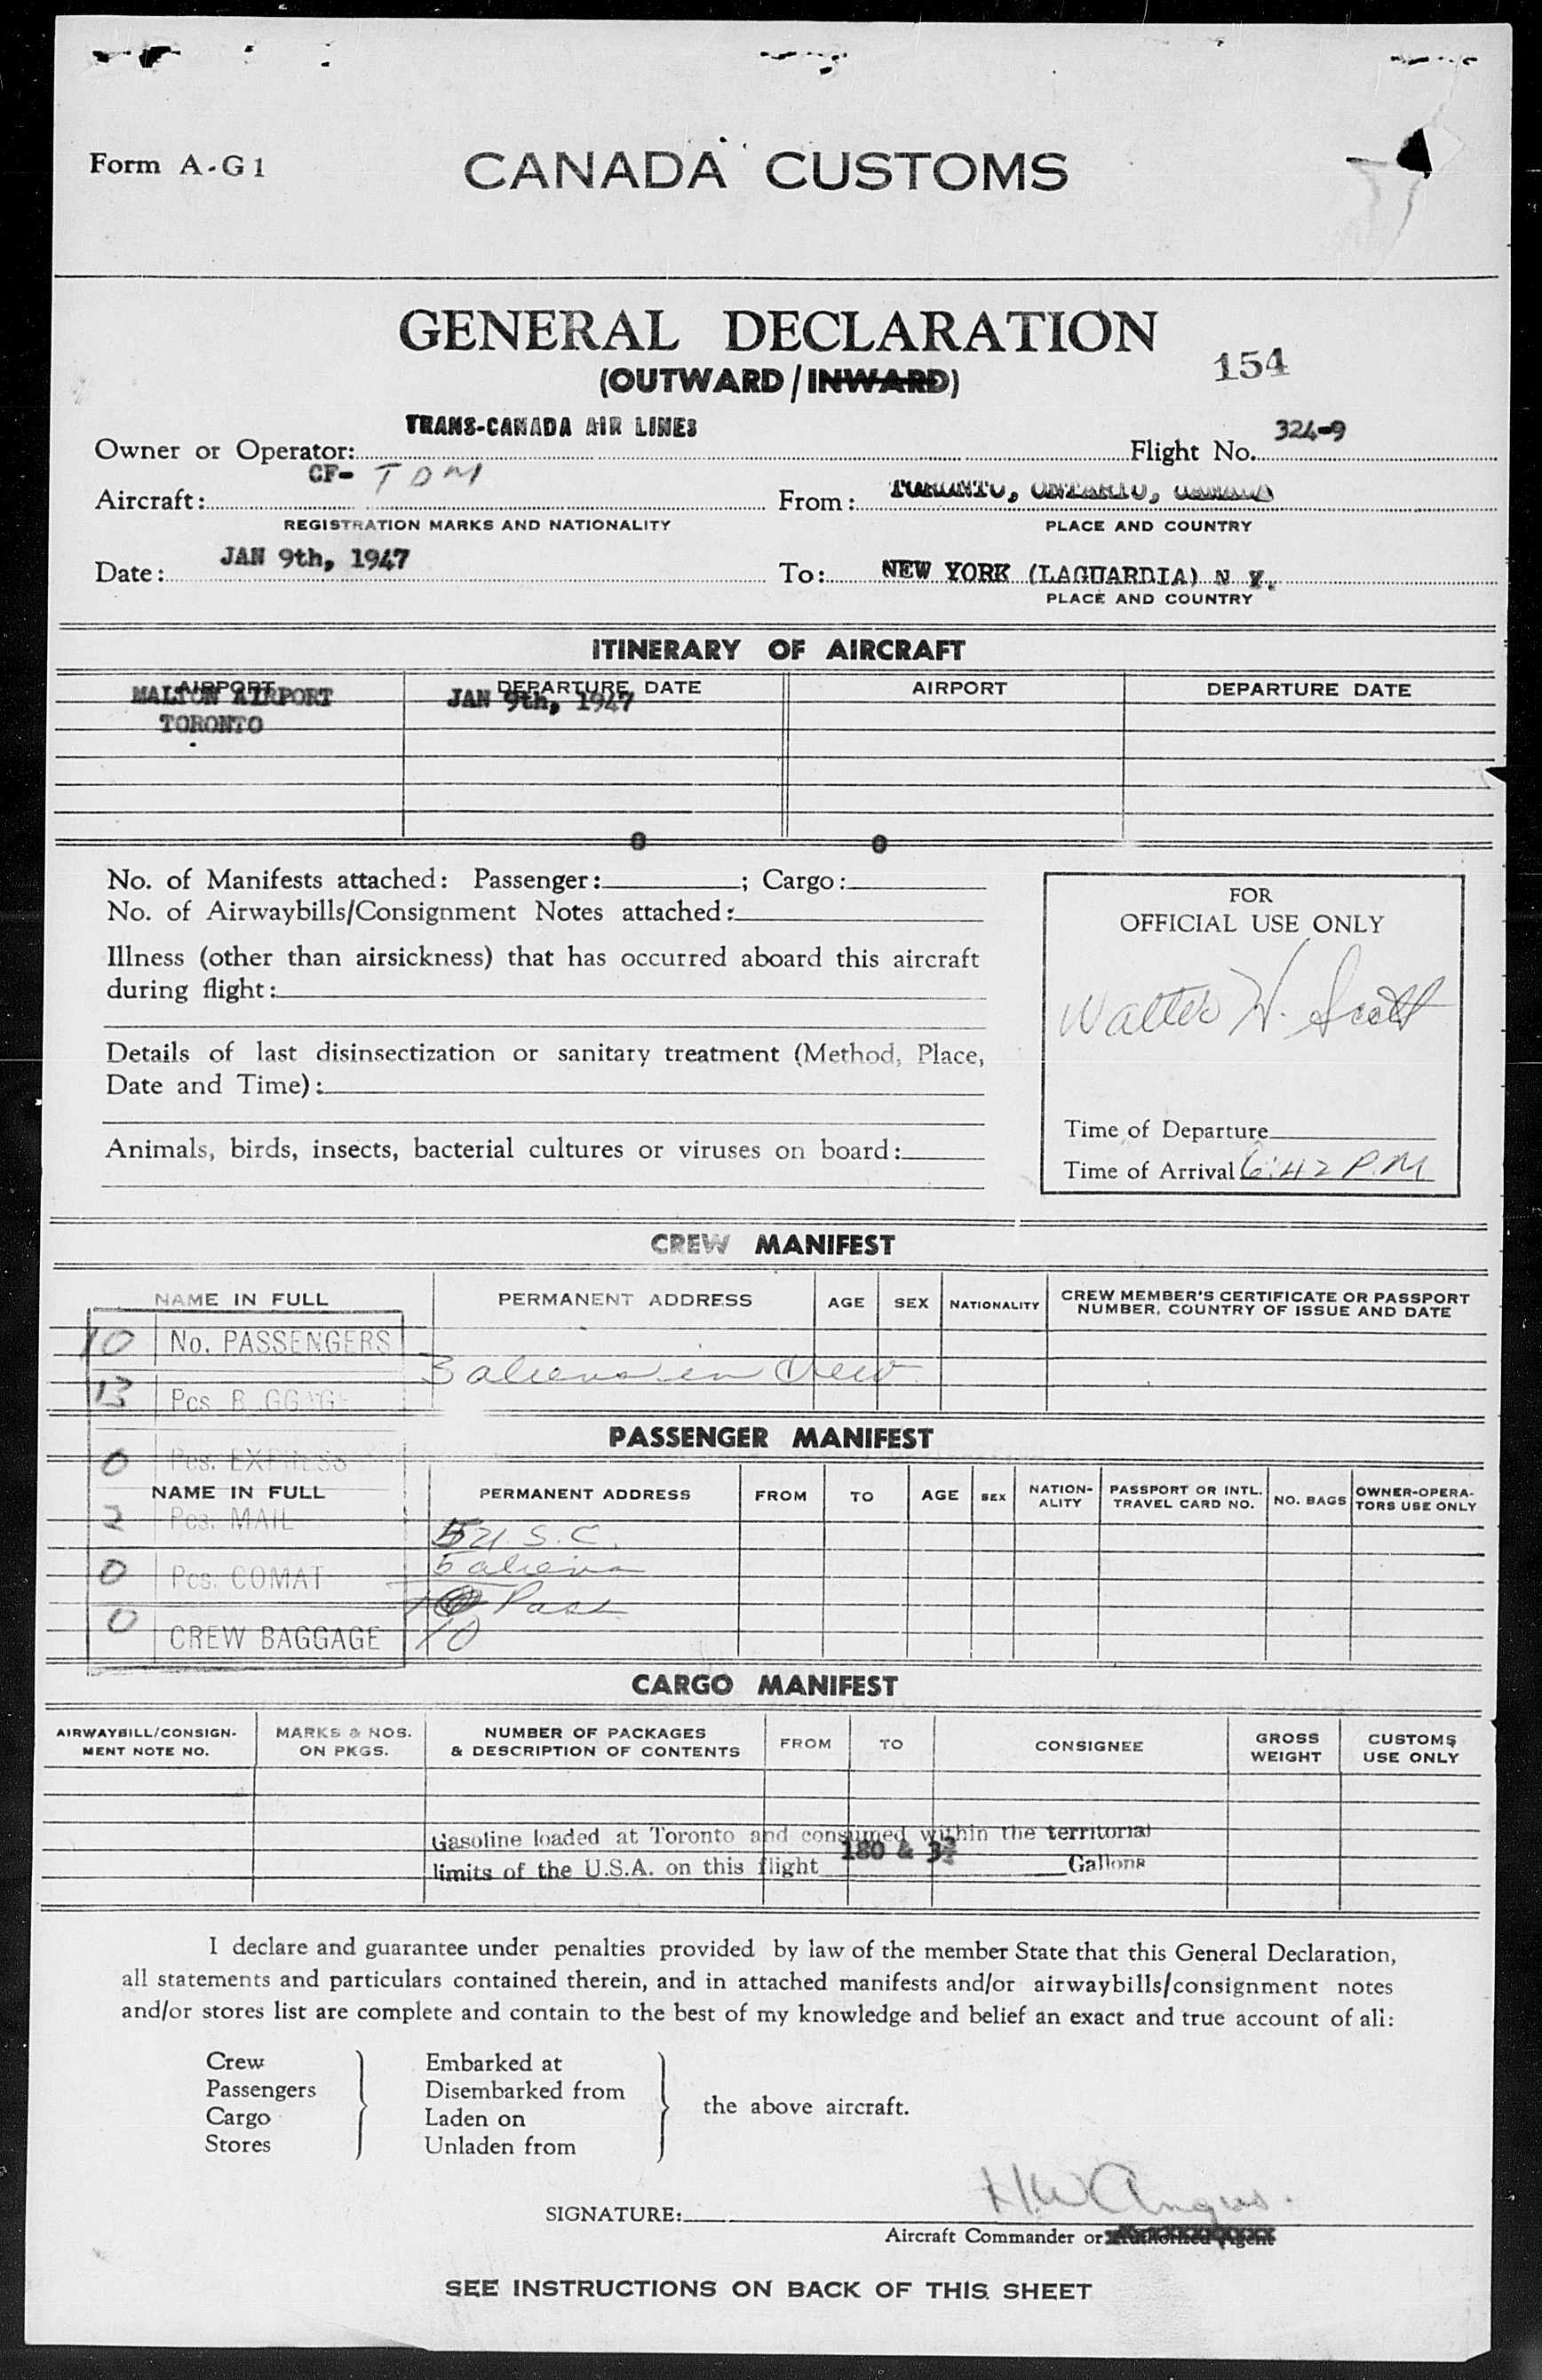 Form A-G1
CANADA CUSTOMS
GENERAL DECLARATION
(OUTWARD/INWARD)
154
TRANS-CANADA AIR LINES
324-9
Owner or Operator:
Flight No.
CF- TDM
TORONTO, ONTARIO, CANADA
Aircraft:
From:
REGISTRATION MARKS AND NATIONALITY
PLACE AND COUNTRY
JAN 9th, 1947
Date:
To: NEW YORK (LAGUARDIA) N Y.
PLACE AND COUNTRY
ITINERARY OF AIRCRAFT
AIRPORT DEPARTURE DATE AIRPORT DEPARTURE DATE
MALTON AIRPORT JAN 9th, 1947
TORONTO
0 0
No. of Manifests attached: Passenger: ; Cargo:
No. of Airwaybills/Consignment Notes attached:
Illness (other than airsickness) that has occurred aboard this aircraft
during flight:
Details of last disinsectization or sanitary treatment (Method, Place,
Date and Time):
Animals, birds, insects, bacterial cultures or viruses on board:
FOR
OFFICIAL USE ONLY
Walter W. Scott
Time of Departure
Time of Arrival 6:42 P.M
CREW MANIFEST
NAME IN FULL PERMANENT ADDRESS AGE SEX NATIONALITY CREW MEMBER'S CERTIFICATE OR PASSPORT
NUMBER, COUNTRY OF ISSUE AND DATE
10 No. PASSENGERS
3 aliens in crew
13 Pcs BAGGAGE
PASSENGER MANIFEST
0 Pcs. EXPRESS
NAME IN FULL PERMANENT ADDRESS FROM TO AGE SEX NATION-
ALITY PASSPORT OR INTL.
TRAVEL CARD NO. NO. BAGS OWNER-OPERA-
TORS USE ONLY
2 Pcs. MAIL
5 U.S.C.
5 aliens
0 Pcs. COMAT
Pass
0 CREW BAGGAGE
10
CARGO MANIFEST
AIRWAYBILL/CONSIGN-
MENT NOTE NO. MARKS & NOS.
ON PKGS. NUMBER OF PACKAGES
& DESCRIPTION OF CONTENTS FROM TO CONSIGNEE GROSS
WEIGHT CUSTOMS
USE ONLY
Gasoline loaded at Toronto and consumed within the territorial
limits of the U.S.A. on this flight 180 & Gallons
I declare and guarantee under penalties provided by law of the member State that this General Declaration,
all statements and particulars contained therein, and in attached manifests and/or airwaybills/consignment notes
and/or stores list are complete and contain to the best of my knowledge and belief an exact and true account of all:
Crew Embarked at
Passengers Disembarked from
the above aircraft.
Cargo Laden on
Stores Unladen from
H W Angus.
SIGNATURE:
Aircraft Commander or Authorized Agent
SEE INSTRUCTIONS ON BACK OF THIS SHEET